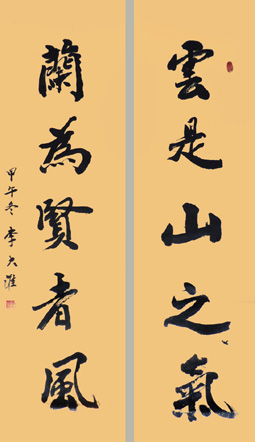 雲是山之氣
蘭為賢者風
甲午冬李大淮